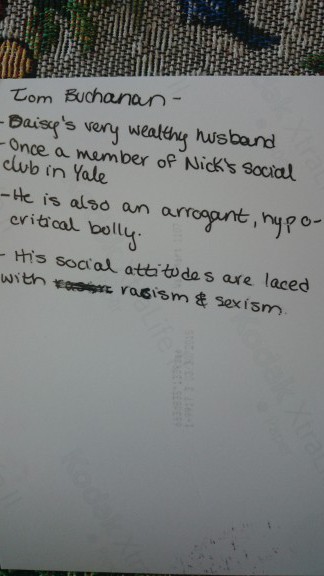 Tom Buchanan -
- Daisy's very wealthy husband
- Once a member of Nick's social
club in Yale
- He is also an arrogant, hypo-
critical bolly.
- His social attitudes are laced
with racism & sexism.
Kodak Xtralife